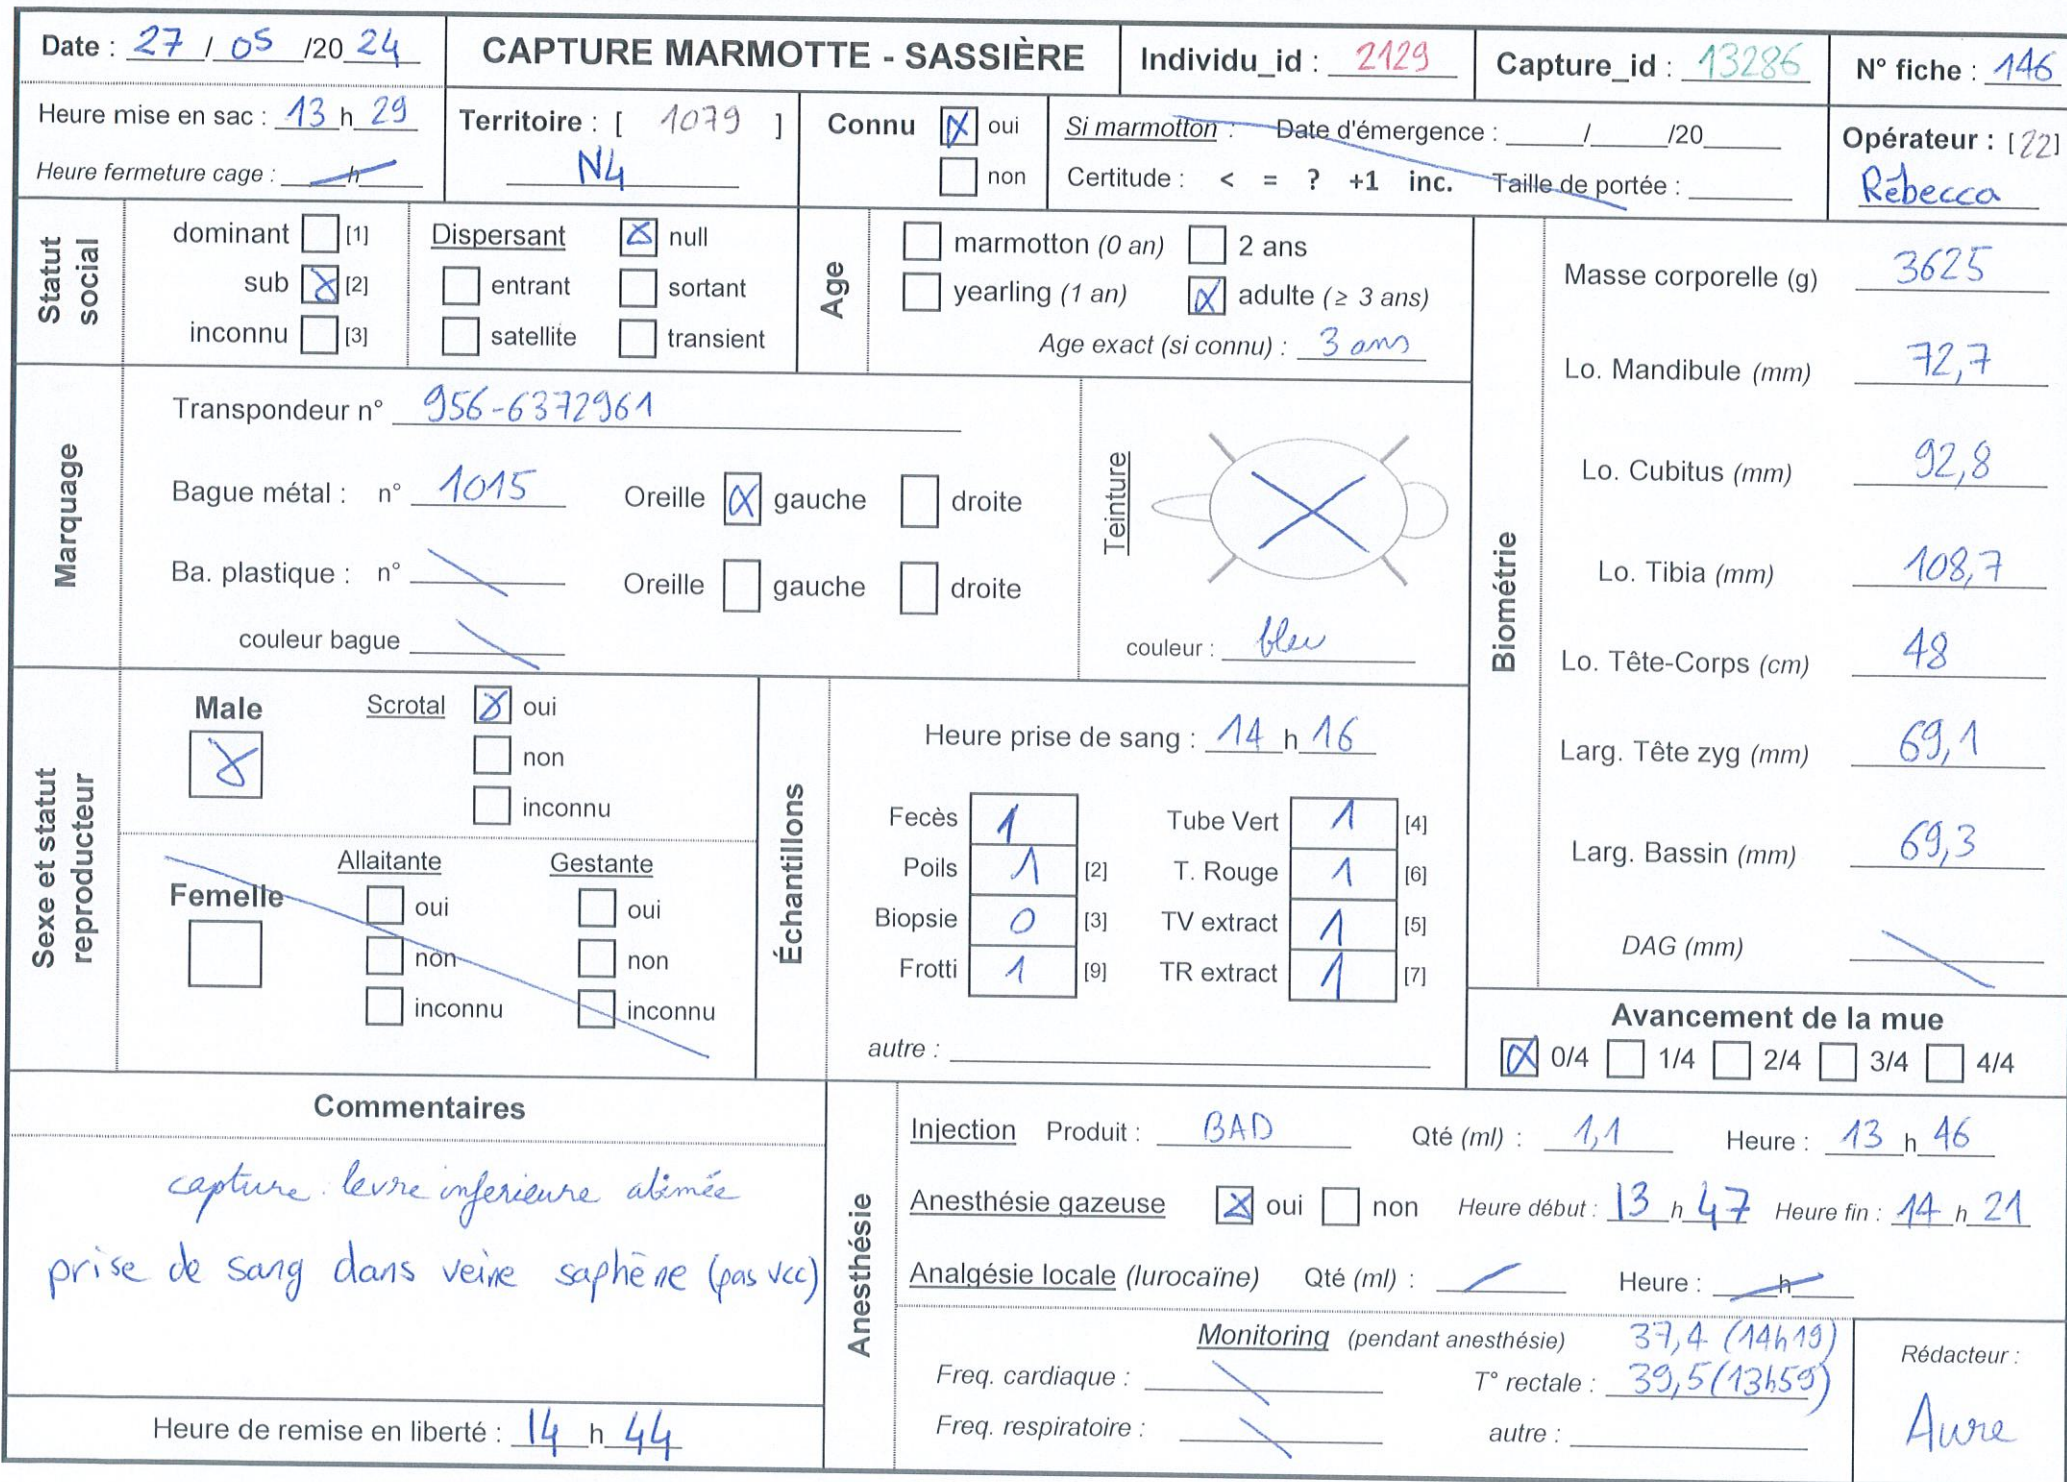 Date : 27 / 05 /20 24
CAPTURE MARMOTTE - SASSIÈRE
Individu_id : 2129
Capture_id : 13286
N° fiche : 146
Heure mise en sac : 13 h 29
Heure fermeture cage : h
Territoire : [ 1079 ]
N4
Connu oui
non
Si marmotton : Date d'émergence : / /20
Certitude : < = ? +1 inc. Taille de portée :
Opérateur : [22]
Rébecca
Statut social
dominant [1]
sub [2]
inconnu [3]
Dispersant null
entrant sortant
satellite transient
Age
marmotton (0 an) 2 ans
yearling (1 an) adulte (≥ 3 ans)
Age exact (si connu) : 3 ans
Marquage
Transpondeur n° 956-6372961
Bague métal : n° 1015 Oreille gauche droite
Ba. plastique : n° Oreille gauche droite
couleur bague
Teinture
couleur : bleu
Biométrie
Masse corporelle (g) 3625
Lo. Mandibule (mm) 72,7
Lo. Cubitus (mm) 92,8
Lo. Tibia (mm) 108,7
Lo. Tête-Corps (cm) 48
Larg. Tête zyg (mm) 69,1
Larg. Bassin (mm) 69,3
DAG (mm)
Sexe et statut reproducteur
Male Scrotal oui
non
inconnu
Femelle
Allaitante Gestante
oui oui
non non
inconnu inconnu
Échantillons
Heure prise de sang : 14 h 16
Fecès 1 Tube Vert 1 [4]
Poils 1 [2] T. Rouge 1 [6]
Biopsie 0 [3] TV extract 1 [5]
Frotti 1 [9] TR extract 1 [7]
autre :
Avancement de la mue
0/4 1/4 2/4 3/4 4/4
Commentaires
capture : levre inferieure abimée
prise de sang dans veine saphène (pas vcc)
Heure de remise en liberté : 14 h 44
Anesthésie
Injection Produit : BAD Qté (ml) : 1,1 Heure : 13 h 46
Anesthésie gazeuse oui non Heure début : 13 h 47 Heure fin : 14 h 21
Analgésie locale (lurocaïne) Qté (ml) : Heure : h
Monitoring (pendant anesthésie) 37,4 (14h19)
Freq. cardiaque : T° rectale : 39,5 (13h59)
Freq. respiratoire : autre :
Rédacteur :
Aure